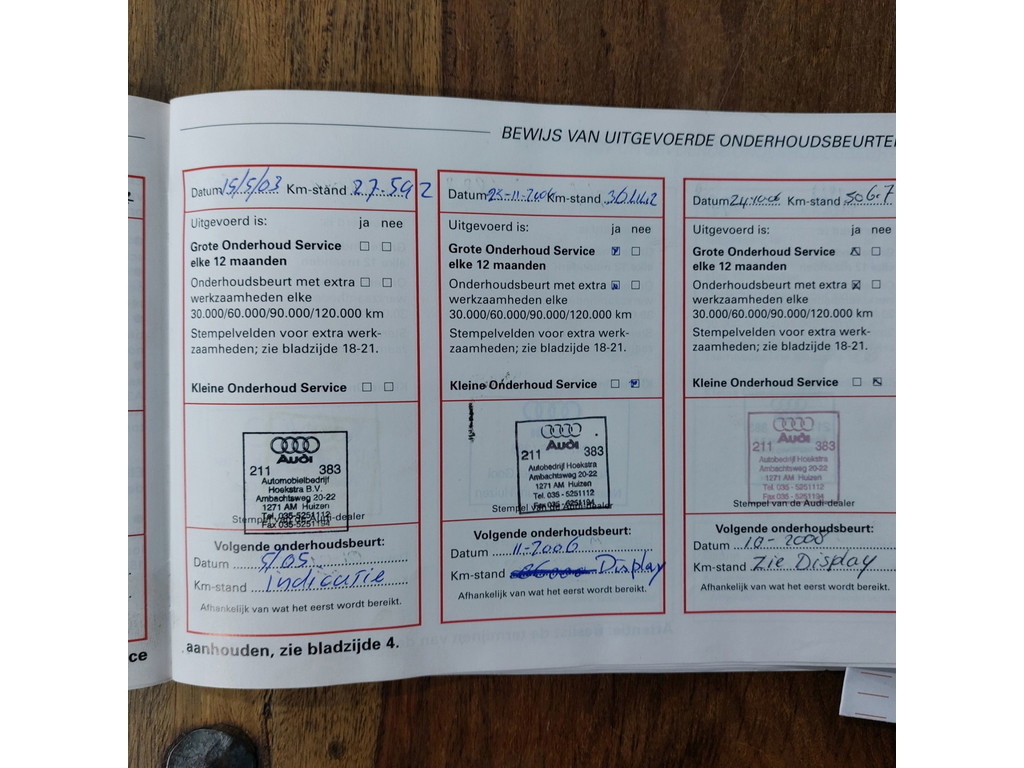 BEWIJS VAN UITGEVOERDE ONDERHOUDSBEURTE
Datum 15/5/03 Km-stand 27.592
Uitgevoerd is: ja nee
Grote Onderhoud Service
elke 12 maanden
Onderhoudsbeurt met extra
werkzaamheden elke
30.000/60.000/90.000/120.000 km
Stempelvelden voor extra werk-
zaamheden; zie bladzijde 18-21.
Kleine Onderhoud Service
Audi
211 383
Automobielbedrijf
Hoekstra B.V.
Ambachtsweg 20-22
1271 AM Huizen
Tel. 035-5251112
Fax 035-5251194
Stempel van de Audi-dealer
Volgende onderhoudsbeurt:
Datum 5/05
Km-stand Indicatie
Afhankelijk van wat het eerst wordt bereikt.
Datum 23-11-200 Km-stand
Uitgevoerd is: ja nee
Grote Onderhoud Service
elke 12 maanden
Onderhoudsbeurt met extra
werkzaamheden elke
30.000/60.000/90.000/120.000 km
Stempelvelden voor extra werk-
zaamheden; zie bladzijde 18-21.
Kleine Onderhoud Service
Audi
211 383
Autobedrijf Hoekstra
Ambachtsweg 20-22
1271 AM Huizen
Tel. 035 - 5251112
Fax 035 - 5251194
Stempel van de Audi-dealer
Volgende onderhoudsbeurt:
Datum 11-2006
Km-stand Display
Afhankelijk van wat het eerst wordt bereikt.
Datum Km-stand
Uitgevoerd is: ja nee
Grote Onderhoud Service
elke 12 maanden
Onderhoudsbeurt met extra
werkzaamheden elke
30.000/60.000/90.000/120.000 km
Stempelvelden voor extra werk-
zaamheden; zie bladzijde 18-21.
Kleine Onderhoud Service
Audi
211 383
Autobedrijf Hoekstra
Ambachtsweg 20-22
1271 AM Huizen
Tel. 035 - 5251112
Fax 035 - 5251194
Stempel van de Audi-dealer
Volgende onderhoudsbeurt:
Datum 10-2008
Km-stand Zie Display
Afhankelijk van wat het eerst wordt bereikt.
aanhouden, zie bladzijde 4.
ce